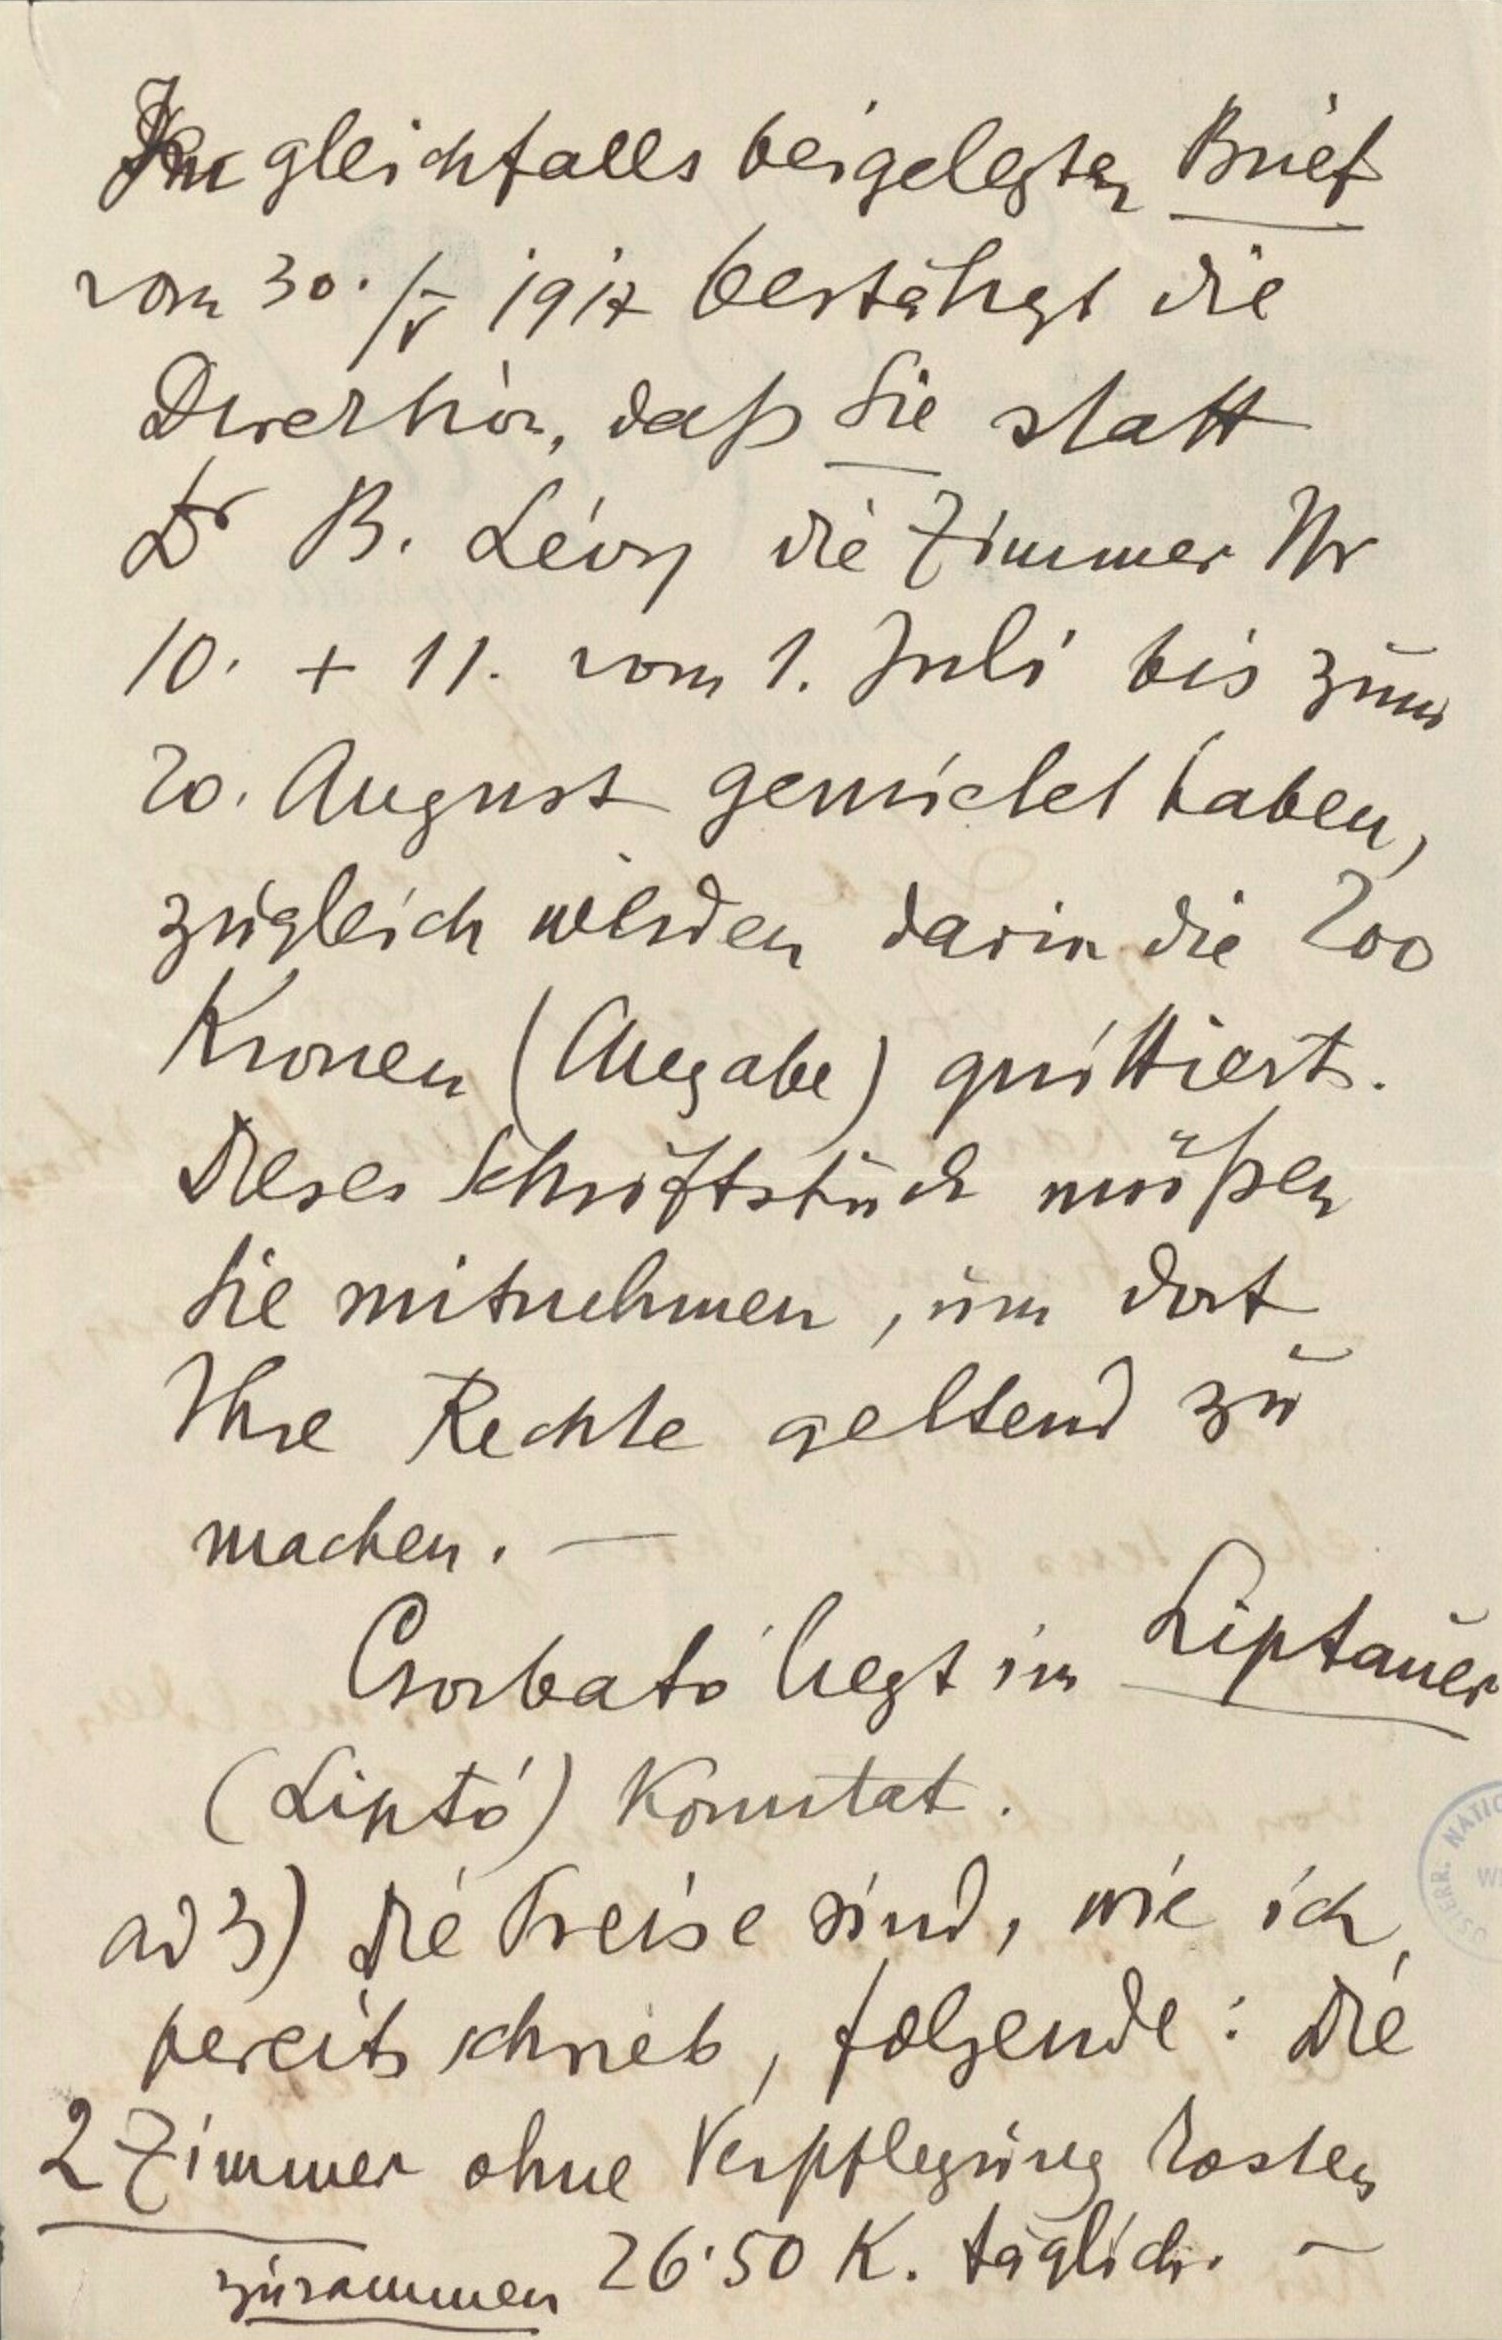 Im gleichfalls beigelegten Brief
vom 30./V 1917 bestätigt die
Direktion, daß Sie statt
Dr B. Lévy die Zimmer Nr
10. + 11. vom 1. Juli bis zum
20. August gemietet haben,
zugleich werden darin die 200
Kronen (Angabe) quittiert.
Dieses Schriftstück müßen
Sie mitnehmen, um dort
Ihre Rechte geltend zu
machen. —
Csorbató liegt im Liptauer
(Liptó) Komitat.
ad 3) Die Preise sind, wie ich
bereits schrieb, folgende: Die
2 Zimmer ohne Verpflegung kosten
zusammen 26·50 K. täglich. —
ÖSTERR. NATIO